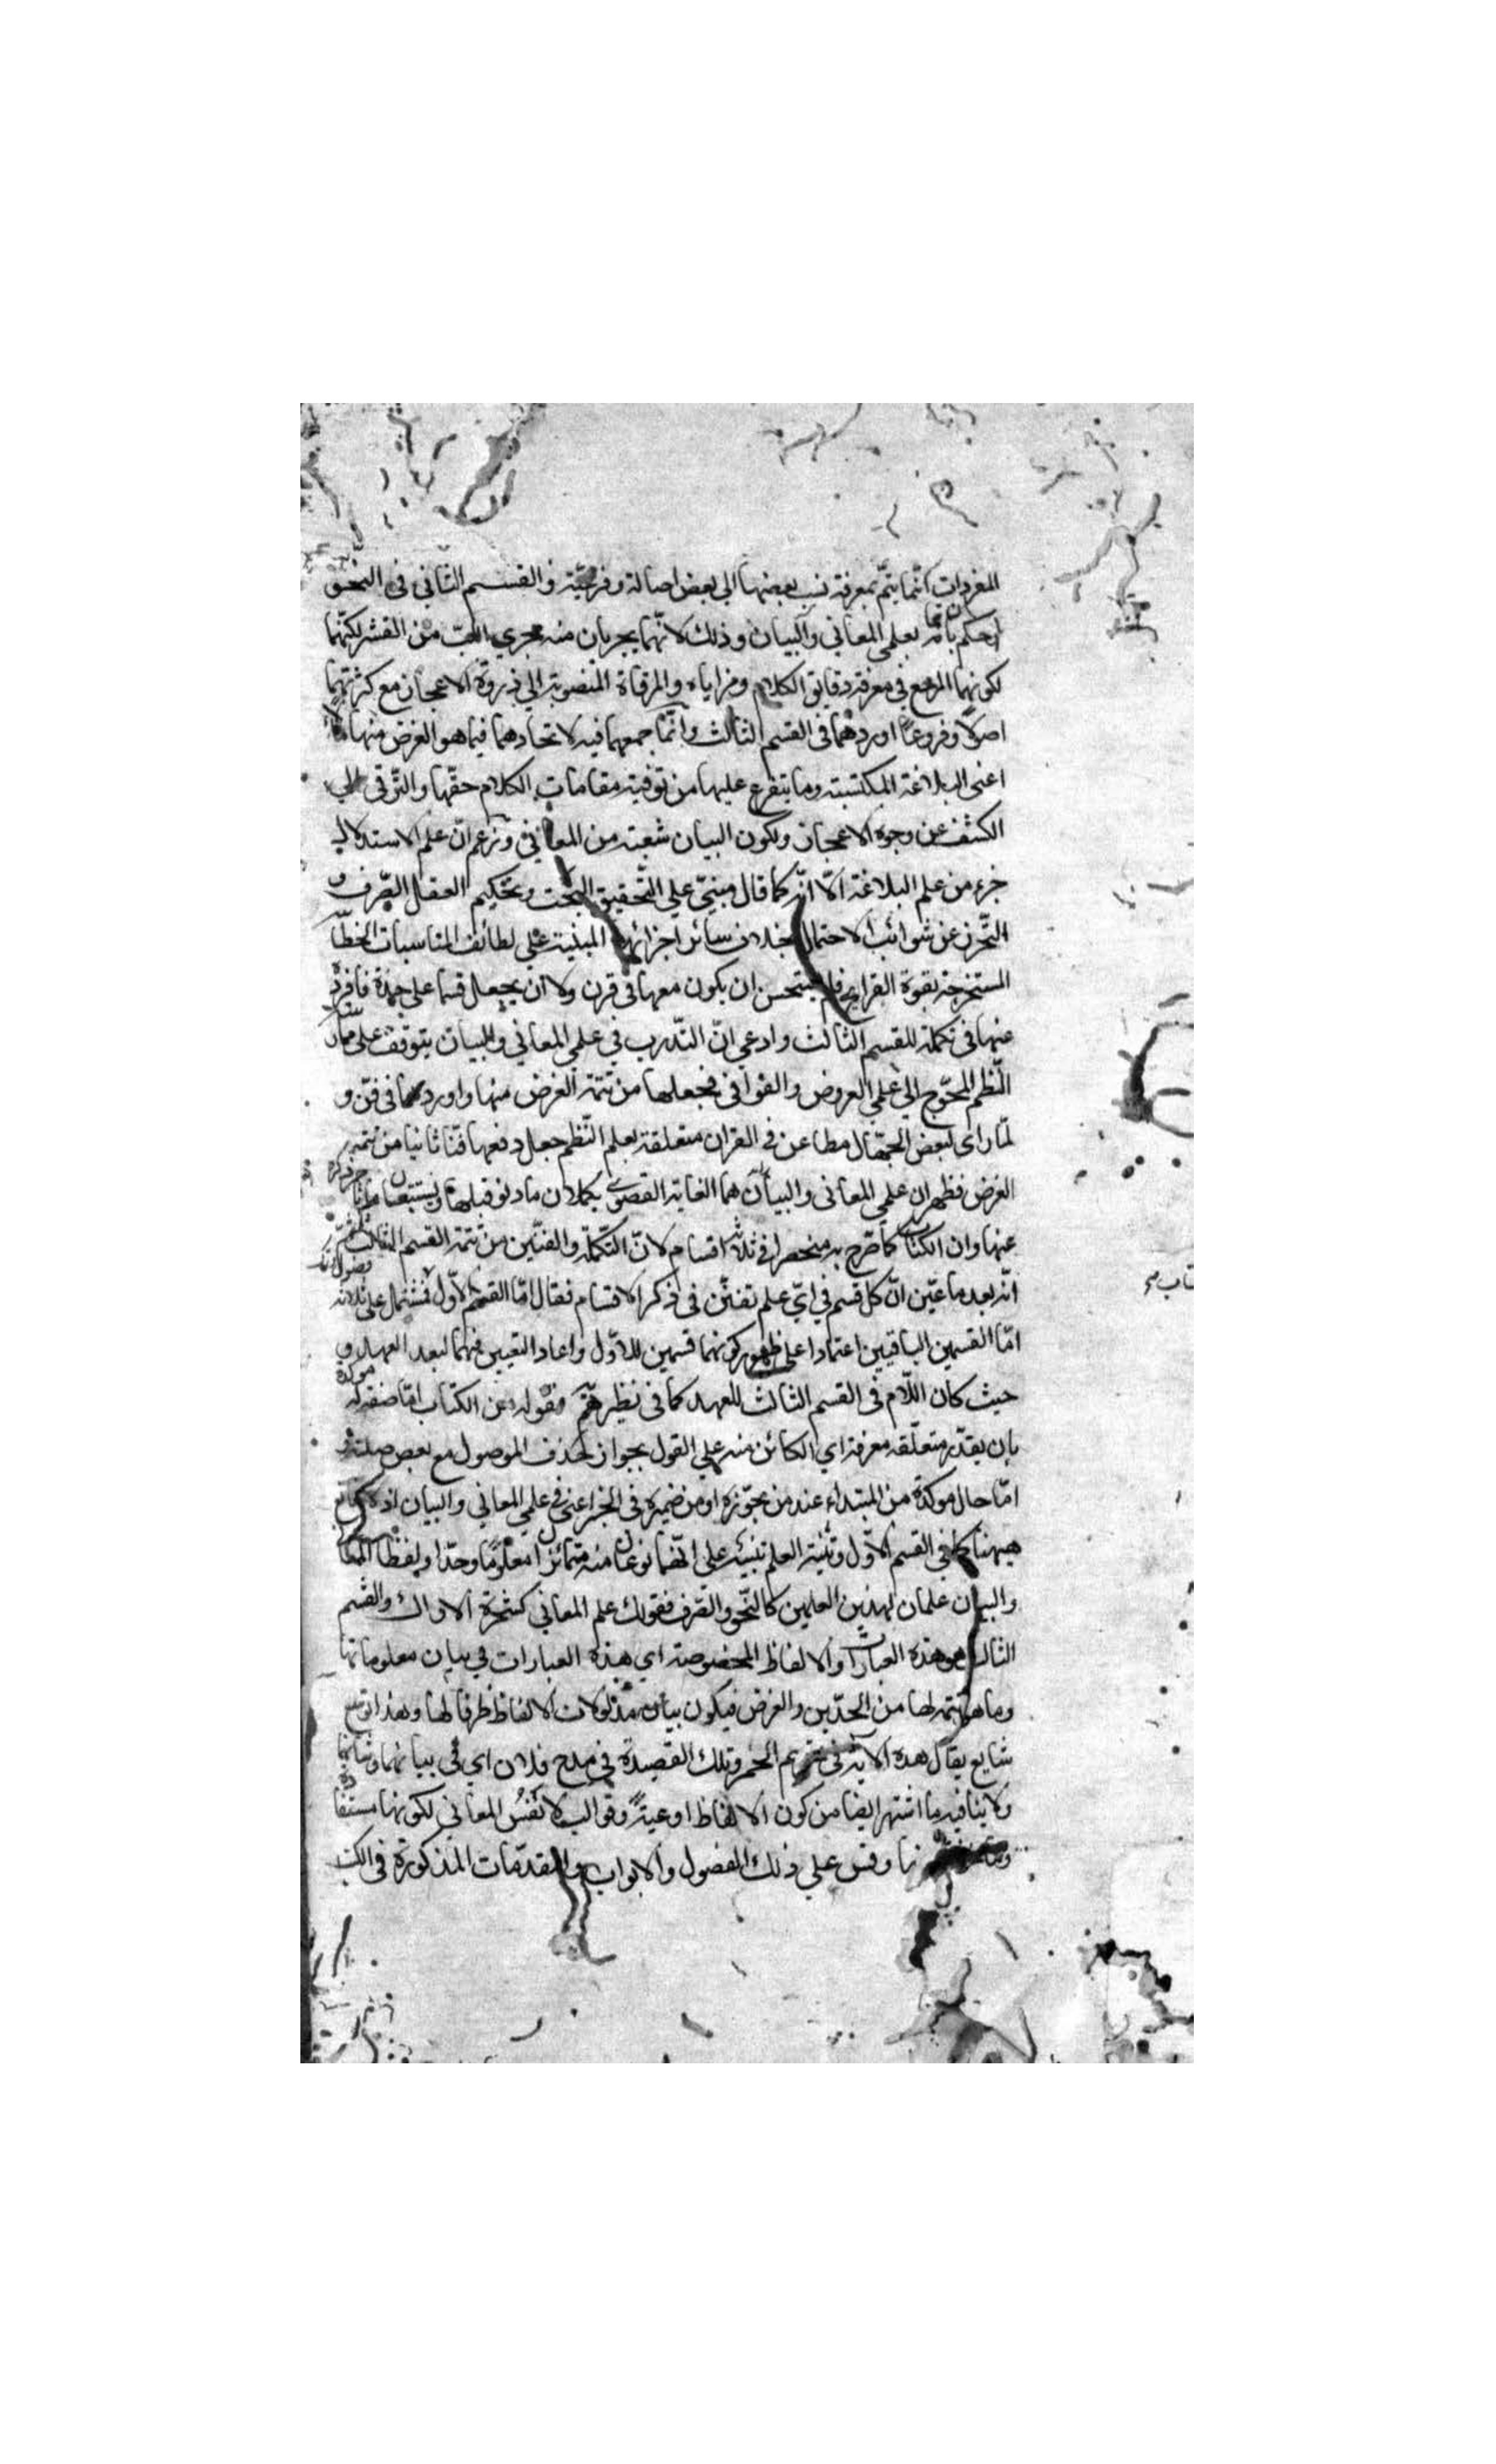 المفردات انما يتم بمعرفة نسب بعضها الى بعض اصالة وفرعية والقسم الثاني في النحو
لكونهما المرجع في معرفة دقايق الكلام ومزاياه والمرقاة المنصوبة الي ذروة الاعجاز مع كثرتهما
اصولا وفروعا اوردهما في القسم الثالث وانما جمعهما فيه لاتحادهما فيما هو الغرض منهما
اعنى البلاغة المكتسبة وما يتفرع عليها من توفية مقامات الكلام حقها والترقى الي
الكشف عن وجوه الاعجاز ولكون البيان شعبة من المعاني وزعم ان علم الاستدلال
جزء من علم البلاغة الا انه كما قال مبني علي التحقيق البحت وتحكيم العقل الصرف و
التحرز عن شوائب الاحتمال بخلاف سائر اجزائها المبنية علي لطائف المناسبات الخطابية
المستخرجة بقوة القرايح فلم يستحسن ان يكون معها في قرن ولا ان يجعل قسما على حدة فافرد
عنها في تكملة للقسم الثالث وادعي ان التدرب في علمي المعاني والبيان يتوقف على ممارسة
النظم المحوج الي علمي العروض والقوافى فجعلها من تتمة الغرض منها واوردهما في فن و
لما راى لبعض الجهال مطاعن في القران متعلقة بعلم النظم جعل دفعها فنا ثانيا من تتمة
الغرض فظهر ان علمي المعانى والبيان هما الغاية القصوى
عنها وان الكتاب كما صرح به منحصر في ثلاثة اقسام لان التكملة والفنين من تتمة القسم الثالث
انه بعد ما عين ان كل قسم في اي علم تفنن في ذكر الاقسام فقال اما القسم الاول فمشتمل على ثلاثة
اما القسمين الباقيين اعتمادا على ظهور كونهما قسمين للاول واعاد التعيين فيهما لبعد العهد و
حيث كان اللام في القسم الثالث للعهد كما في نظيره فقوله من الكتاب اما صفة له
بان يقدر متعلقه معرفة اي الكائن منه علي القول بجواز حذف الموصول مع بعض صلته و
اما حال موكدة من المبتداء عند من يجوزه او من ضميره في الخبر اعني في علمي المعاني والبيان
ههنا كما في القسم الاول وتثنية العلم تنبيه على انهما نوعان منه متمائزا معلوما وحدا ولفظا المعاني
والبيان علمان لهذين العلمين كالنحو والصرف فقولك علم المعاني كشجرة الاراك والقسم
الثالث هو هذه العبارات والالفاظ المخصوصة اي هذه العبارات في بيان معلوماتها
وما هو تتمة لها من الحدين والغرض فيكون بيان مدلولات الالفاظ ظرفا لها وهذا توسع
شايع يقال هذه الاية في تحريم الخمر وتلك القصيدة في مدح فلان اي في بيانهما وشانهما
ولا ينافيه ما اشتهر ايضا من كون الالفاظ اوعية وقوالب لانفس المعاني لكونها مستفادة
وقس علي ذلك الفصول والابواب والمقدمات المذكورة في الكتب